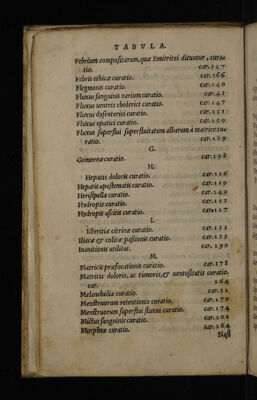 TABVLA.
Febrium compositarum, quæ Emitritei dicuntur, cura-
tio. car.157
Febris ethicæ curatio. car.166
Flegmonis curatio. car.140
Fluxus sanguinis narium curatio. car.42
Fluxus ventris cholerici curatio. car.147
Fluxus dysenterici curatio. car.151
Fluxus epatici curatio. car.150
Fluxus superflui superfluitatum albarum à matrice cu-
ratio. car.189
G.
Gomorreæ curatio. car.198
H.
Hepatis doloris curatio. car.116
Hepatis apostematis curatio. car.119
Herisipelæ curatio. car.149
Hydropis curatio. car.121
Hydropis ascitis curatio. car.127
I.
Icteritiæ citrinæ curatio. car.133
Iliacæ & colicæ passionis curatio. car.155
Inanitionis utilitas. car.290
M.
Matricis præfocationis curatio. car.178
Matricis doloris, ac tumoris, & ventositatis curatio.
car. 164
Melancholiæ curatio. car.22
Menstruorum retentionis curatio. car.170
Menstruorum superflui fluxus curatio. car.174
Mictus sanguinis curatio. car.202
Morpheæ curatio. car.264
Nasi